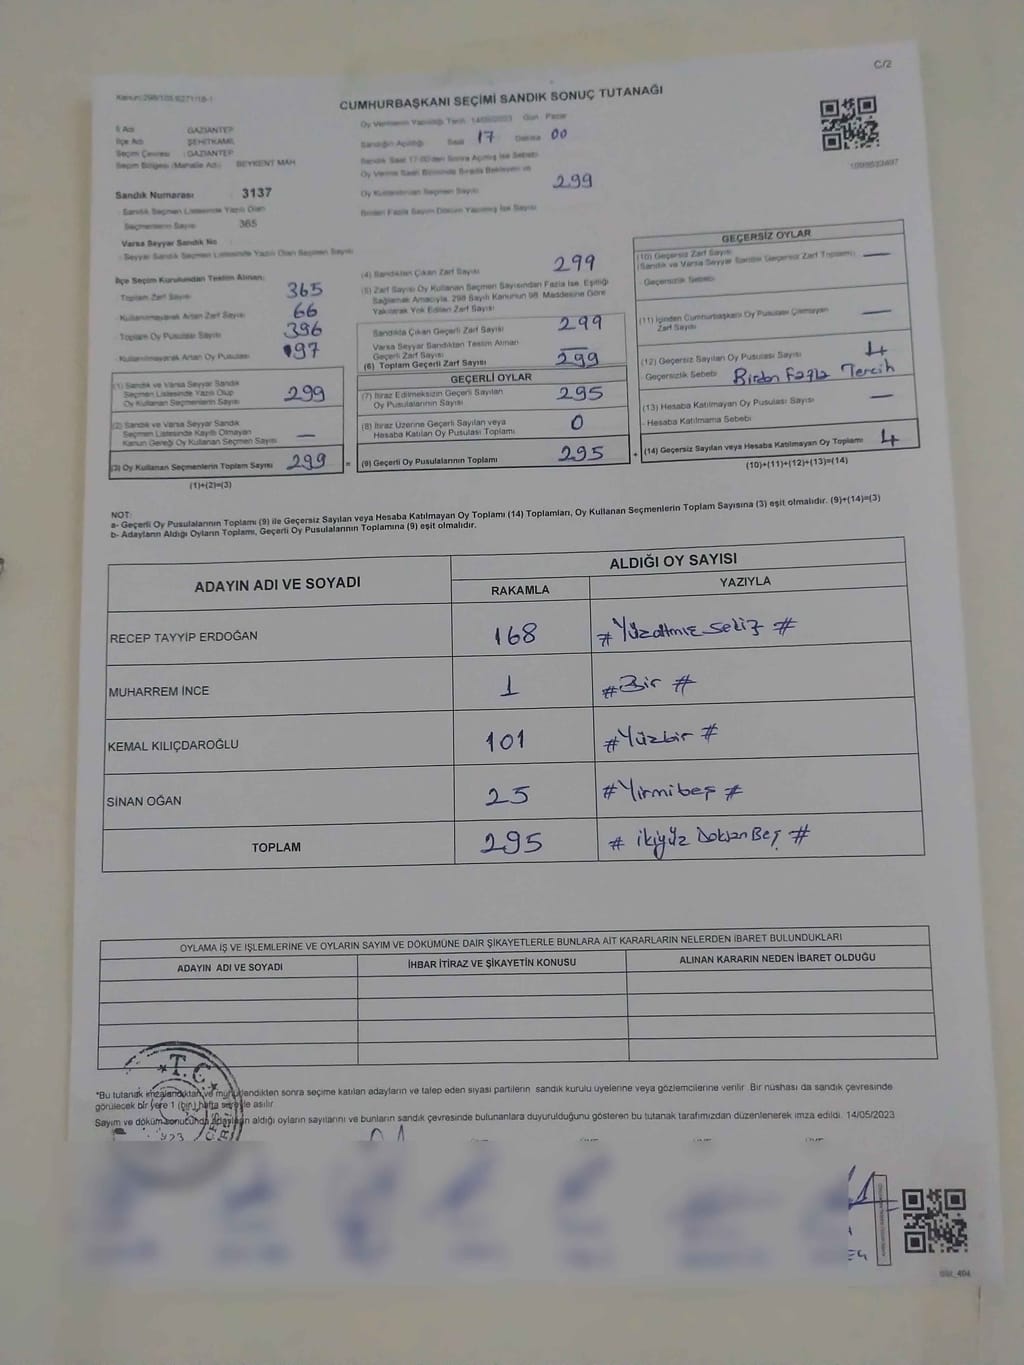 C/2
Kanun:298/105,6271/16-1
CUMHURBAŞKANI SEÇİMİ SANDIK SONUÇ TUTANAĞI
İl Adı GAZİANTEP
İlçe Adı ŞEHİTKAMİL
Seçim Çevresi : GAZİANTEP
Seçim Bölgesi (Mahalle Adı) BEYKENT MAH
Sandık Numarası : 3137
- Sandık Seçmen Listesinde Yazılı Olan
Seçmenlerin Sayısı 365
Varsa Seyyar Sandık No
- Seyyar Sandık Seçmen Listesinde Yazılı Olan Seçmen Sayısı
Oy Vermenin Yapıldığı Tarih 14/05/2023 Gün Pazar
Sandığın Açıldığı Saat 17 Dakika 00
Sandık Saat 17:00'den Sonra Açılmış İse Sebebi
Oy Verme Saati Bitiminde Sırada Bekleyen ve
Oy Kullandırılan Seçmen Sayısı 299
Birden Fazla Sayım Döküm Yapılmış İse Sayısı
İlçe Seçim Kurulundan Teslim Alınan:
- Toplam Zarf Sayısı 365
- Kullanılmayarak Artan Zarf Sayısı 66
- Toplam Oy Pusulası Sayısı 396
- Kullanılmayarak Artan Oy Pusulası 97
(1) Sandık ve Varsa Seyyar Sandık
Seçmen Listesinde Yazılı Olup
Oy Kullanan Seçmenlerin Sayısı 299
(2) Sandık ve Varsa Seyyar Sandık
Seçmen Listesinde Kayıtlı Olmayan
Kanun Gereği Oy Kullanan Seçmen Sayısı —
(3) Oy Kullanan Seçmenlerin Toplam Sayısı 299 =
(1)+(2)=(3)
(4) Sandıktan Çıkan Zarf Sayısı 299
(5) Zarf Sayısı Oy Kullanan Seçmen Sayısından Fazla İse, Eşitliği
Sağlamak Amacıyla, 298 Sayılı Kanunun 98. Maddesine Göre
Yakılarak Yok Edilen Zarf Sayısı
Sandıkta Çıkan Geçerli Zarf Sayısı 299
Varsa Seyyar Sandıktan Teslim Alınan
Geçerli Zarf Sayısı —
(6) Toplam Geçerli Zarf Sayısı 299
GEÇERLİ OYLAR
(7) İtiraz Edilmeksizin Geçerli Sayılan
Oy Pusulalarının Sayısı 295
(8) İtiraz Üzerine Geçerli Sayılan veya
Hesaba Katılan Oy Pusulası Toplamı 0
(9) Geçerli Oy Pusulalarının Toplamı 295 +
GEÇERSİZ OYLAR
(10) Geçersiz Zarf Sayısı
(Sandık ve Varsa Seyyar Sandık Geçersiz Zarf Toplamı) —
- Geçersizlik Sebebi
(11) İçinden Cumhurbaşkanı Oy Pusulası Çıkmayan
Zarf Sayısı —
(12) Geçersiz Sayılan Oy Pusulası Sayısı 4
Geçersizlik Sebebi Birden Fazla Tercih
(13) Hesaba Katılmayan Oy Pusulası Sayısı —
- Hesaba Katılmama Sebebi
(14) Geçersiz Sayılan veya Hesaba Katılmayan Oy Toplamı 4
(10)+(11)+(12)+(13)=(14)
NOT:
a- Geçerli Oy Pusulalarının Toplamı (9) ile Geçersiz Sayılan veya Hesaba Katılmayan Oy Toplamı (14) Toplamları, Oy Kullanan Seçmenlerin Toplam Sayısına (3) eşit olmalıdır. (9)+(14)=(3)
b- Adayların Aldığı Oyların Toplamı, Geçerli Oy Pusulalarının Toplamına (9) eşit olmalıdır.
ADAYIN ADI VE SOYADI ALDIĞI OY SAYISI
RAKAMLA YAZIYLA
RECEP TAYYİP ERDOĞAN 168 # Yüzaltmış sekiz #
MUHARREM İNCE 1 # Bir #
KEMAL KILIÇDAROĞLU 101 # Yüzbir #
SİNAN OĞAN 25 # Yirmibeş #
TOPLAM 295 # ikiyüz Doksan Beş #
OYLAMA İŞ VE İŞLEMLERİNE VE OYLARIN SAYIM VE DÖKÜMÜNE DAİR ŞİKAYETLERLE BUNLARA AİT KARARLARIN NELERDEN İBARET BULUNDUKLARI
ADAYIN ADI VE SOYADI İHBAR İTİRAZ VE ŞİKAYETİN KONUSU ALINAN KARARIN NEDEN İBARET OLDUĞU
T.C.
*Bu tutanak imzalandıktan ve mühürlendikten sonra seçime katılan adayların ve talep eden siyasi partilerin sandık kurulu üyelerine veya gözlemcilerine verilir. Bir nüshası da sandık çevresinde
görülecek bir yere 1 (bir) hafta süreyle asılır.
Sayım ve döküm sonucunda adayların aldığı oyların sayılarını ve bunların sandık çevresinde bulunanlara duyurulduğunu gösteren bu tutanak tarafımızdan düzenlenerek imza edildi. 14/05/2023